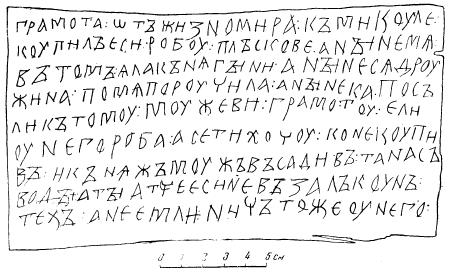 грамота : ѡтъ жизномира : къ микоуле :
коупилъ еси : робоу : плъскове : а нꙑне ма
въ томъ : ала кънагꙑни : а нꙑне са дроу
жина : по ма пороучила : а нꙑне ка : посъ
ли къ томоу : моужеви : грамотоу : ели
оу него роба : а се ти хочоу : коне коупи
въ : и кънажъ моужъ въсадивъ : та на съ
водꙑ : а тꙑ атче еси не възалъ коунъ :
техъ : а не емли : ничъто же оу него :
0 1 2 3 4 5 см